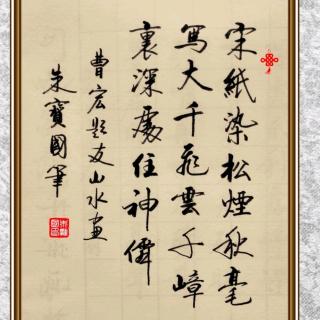 宋紙染松煙秋毫
寫大千飛雲千嶂
裏深處住神僊
曹宏题友山水畫
朱寶國筆